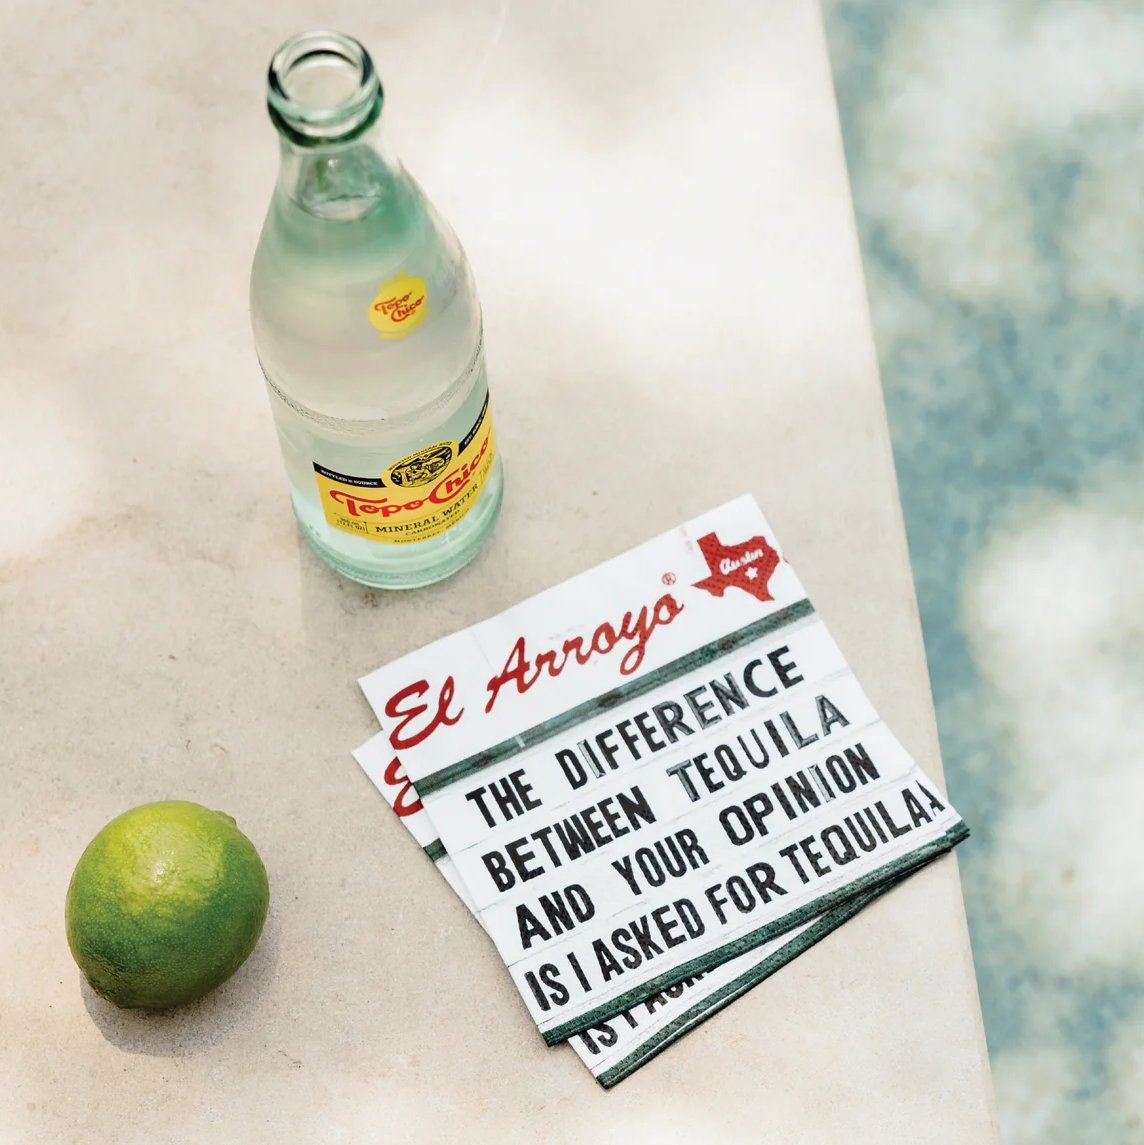 Topo
Chico
BOTTLED @ SOURCE
Topo Chico
MINERAL WATER
CARBONATED
El Arroyo®
Austin
THE DIFFERENCE
BETWEEN TEQUILA
AND YOUR OPINION
IS I ASKED FOR TEQUILA
E
IS I ASK